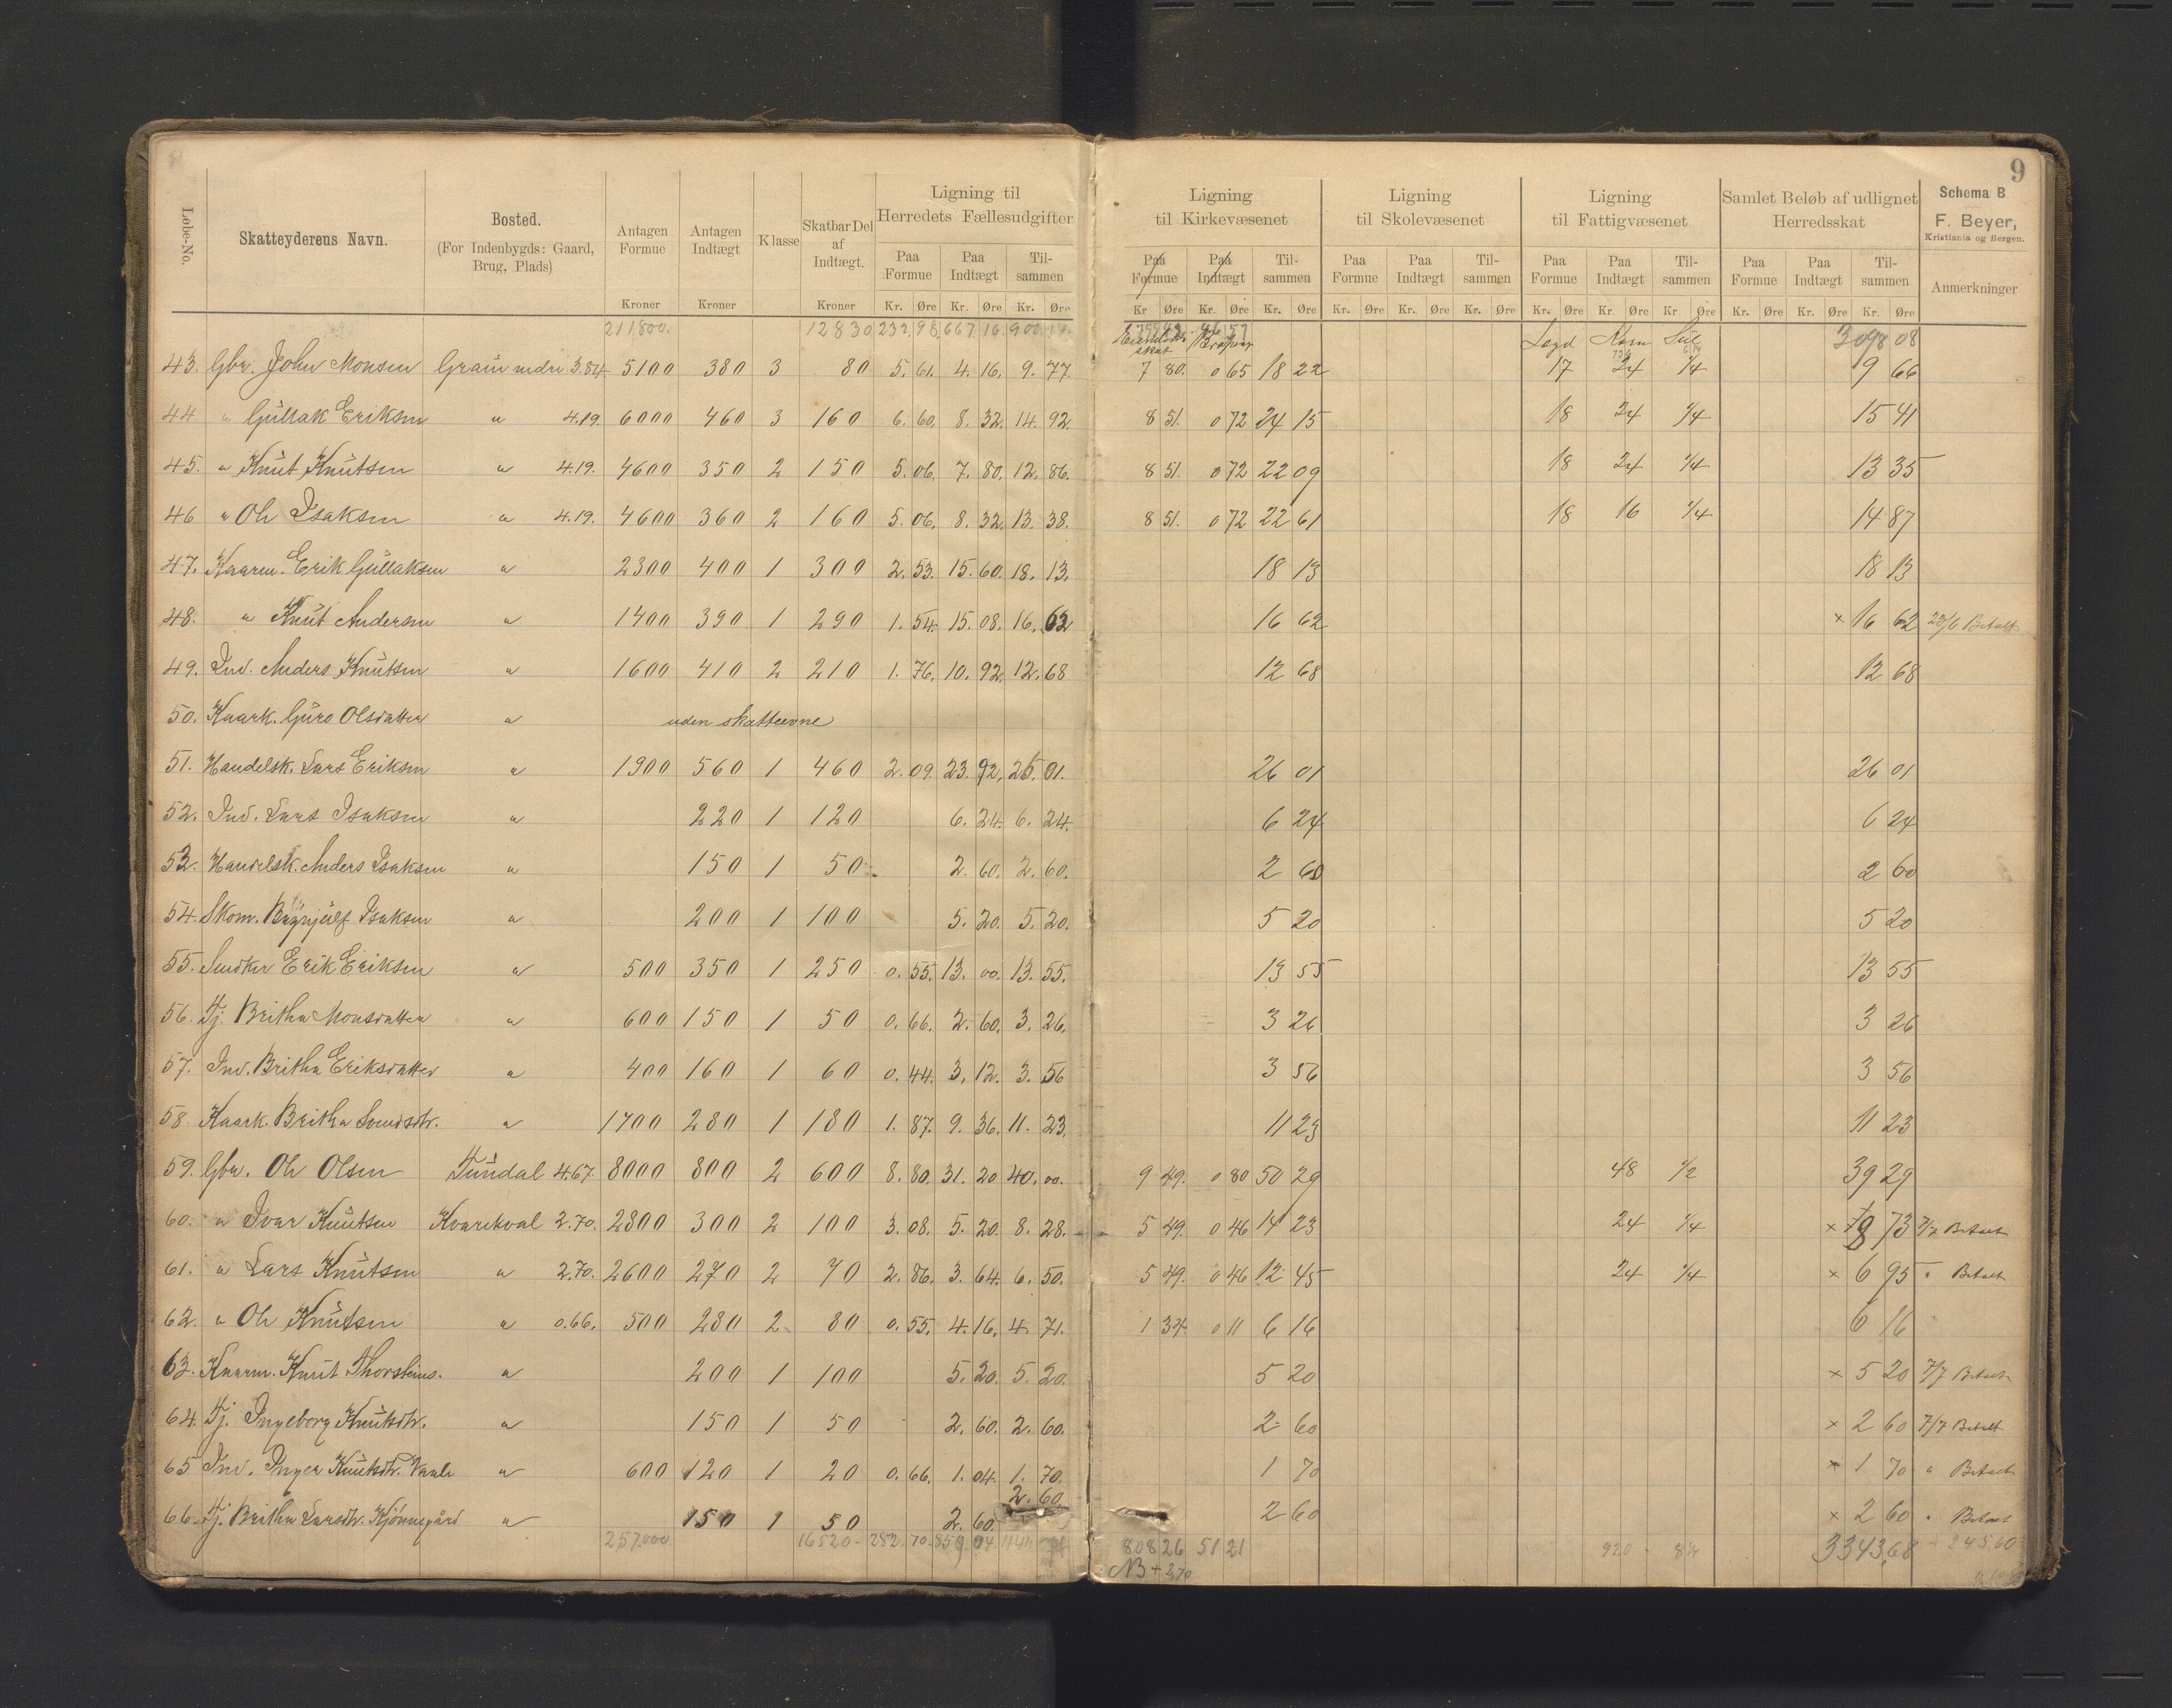 9
Løbe-No. Skatteyderens Navn. Bosted. (For Indenbygds: Gaard, Brug, Plads) Antagen Formue Antagen Indtægt Klasse Skatbar Del af Indtægt. Ligning til Herredets Fællesudgifter Ligning til Kirkevæsenet Ligning til Skolevæsenet Ligning til Fattigvæsenet Samlet Beløb af udlignet Herredsskat Schema B. F. Beyer, Kristiania og Bergen.
Paa Formue Paa Indtægt Tilsammen Paa Formue Paa Indtægt Tilsammen Paa Formue Paa Indtægt Tilsammen Paa Formue Paa Indtægt Tilsammen Paa Formue Paa Indtægt Tilsammen Anmerkninger
Kroner Kroner Kroner Kr. Øre Kr. Øre Kr. Øre Kr Øre Kr. Øre Kr. Øre Kr. Øre Kr. Øre Kr. Øre Kr. Øre Kr. Øre Kr. Øre Kr. Øre Kr. Øre Kr. Øre
211800. 12830 232,98, 667 16, 900 14. Eiendoms skat Lægd Korn 3098 08
43. Gbr. John Monsen Graue nedre 3.84. 5100 380 3 80 5. 61. 4. 16. 9. 77. 7 80. 0 65 18 22 17 24 1/4 9 66
44 " Gullak Eriksen " 4.19. 6000 460 3 160 6. 60. 8. 32. 14. 92. 8 51. 0 72 24 15 18 24 1/4 15 41
45. " Knut Knutsen " 4.19. 4600 350 2 150 5. 06. 7. 80. 12. 86. 8 51. 0 72 22 09 18 24 1/4 13 35
46 " Ole Isaksen " 4.19. 4600 360 2 160 5. 06. 8. 32. 13. 38. 8 51. 0 72 22 61 18 16 1/4 14 87
47. Kaarm. Erik Gullaksen " 2300 400 1 300 2. 53. 15. 60. 18. 13. 18 13 18 13
48. " Knut Andersen " 1400 390 1 290 1. 54. 15. 08. 16. 62 16 62 × 16 62 23/6 Betalt
49. Ind. Anders Knutsen " 1600 410 2 210 1. 76. 10. 92. 12. 68 12 68 12 68
50. Kaark. Guro Olsdatter " uden skatteevne
51. Handelsk. Lars Eriksen " 1900 560 1 460 2. 09. 23. 92. 26. 01. 26 01 26 01
52. Ind. Lars Isaksen " 220 1 120 6. 24. 6. 24. 6 24 6 24
53. Handelsk. Anders Isaksen " 150 1 50 2. 60. 2. 60. 2 60 2 60
54. Skom. Brynjulf Isaksen " 200 1 100 5. 20. 5. 20. 5 20 5 20
55. Snedker Erik Eriksen " 500 350 1 250 0. 55. 13. 00. 13. 55. 13 55 13 55
56. Tj. Britha Monsdatter " 600 150 1 50 0. 66. 2. 60. 3. 26. 3 26 3 26
57. Ind. Britha Eriksdatter " 400 160 1 60 0. 44. 3. 12. 3. 56 3 56 3 56
58. Kaark. Britha Sveindsdtr. " 1700 280 1 180 1. 87. 9. 36. 11. 23. 11 23 11 23
59. Gbr. Ole Olsen Tundal 4.67. 8000 800 2 600 8. 80. 31. 20 40. 00. 9 49. 0 80 50 29 48 1/2 39 29
60. " Ivar Knutsen Kvarekval 2.70. 2800 300 2 100 3. 08. 5. 20. 8. 28. 5 49. 0 46 14 23 24 1/4 × 8 73 7/7 Betalt
61. " Lars Knutsen " 2.70. 2600 270 2 70 2. 86. 3. 64. 6. 50. 5 49. 0 46 12 45 24 1/4 × 6 95 " Betalt
62. " Ole Knutsen " 0.66. 500 280 2 80 0. 55. 4. 16. 4. 71. 1 34 0 11 6 16 6 16
63. Kaarm. Knut Thorsteins. " 200 1 100 5. 20. 5. 20. 5 20 × 5 20 7/7 Betalt
64. Tj. Ingeborg Knutsdtr. " 150 1 50 2. 60. 2. 60. 2 60 × 2 60 7/7 Betalt
65 Ind. Inger Knutsdtr. " 600 120 1 20 0. 66. 1. 04. 1. 70. 1 70 × 1 70 " Betalt
66. Tj. Britha Larsdtr. Kjönnsgård " 150 1 50 2. 60. 2. 60 2 60 × 2 60 " Betalt
257.000. 16520 282. 70. 808 26 51 21 920 8 1/4 3343,68 245,60
NB + 2,70